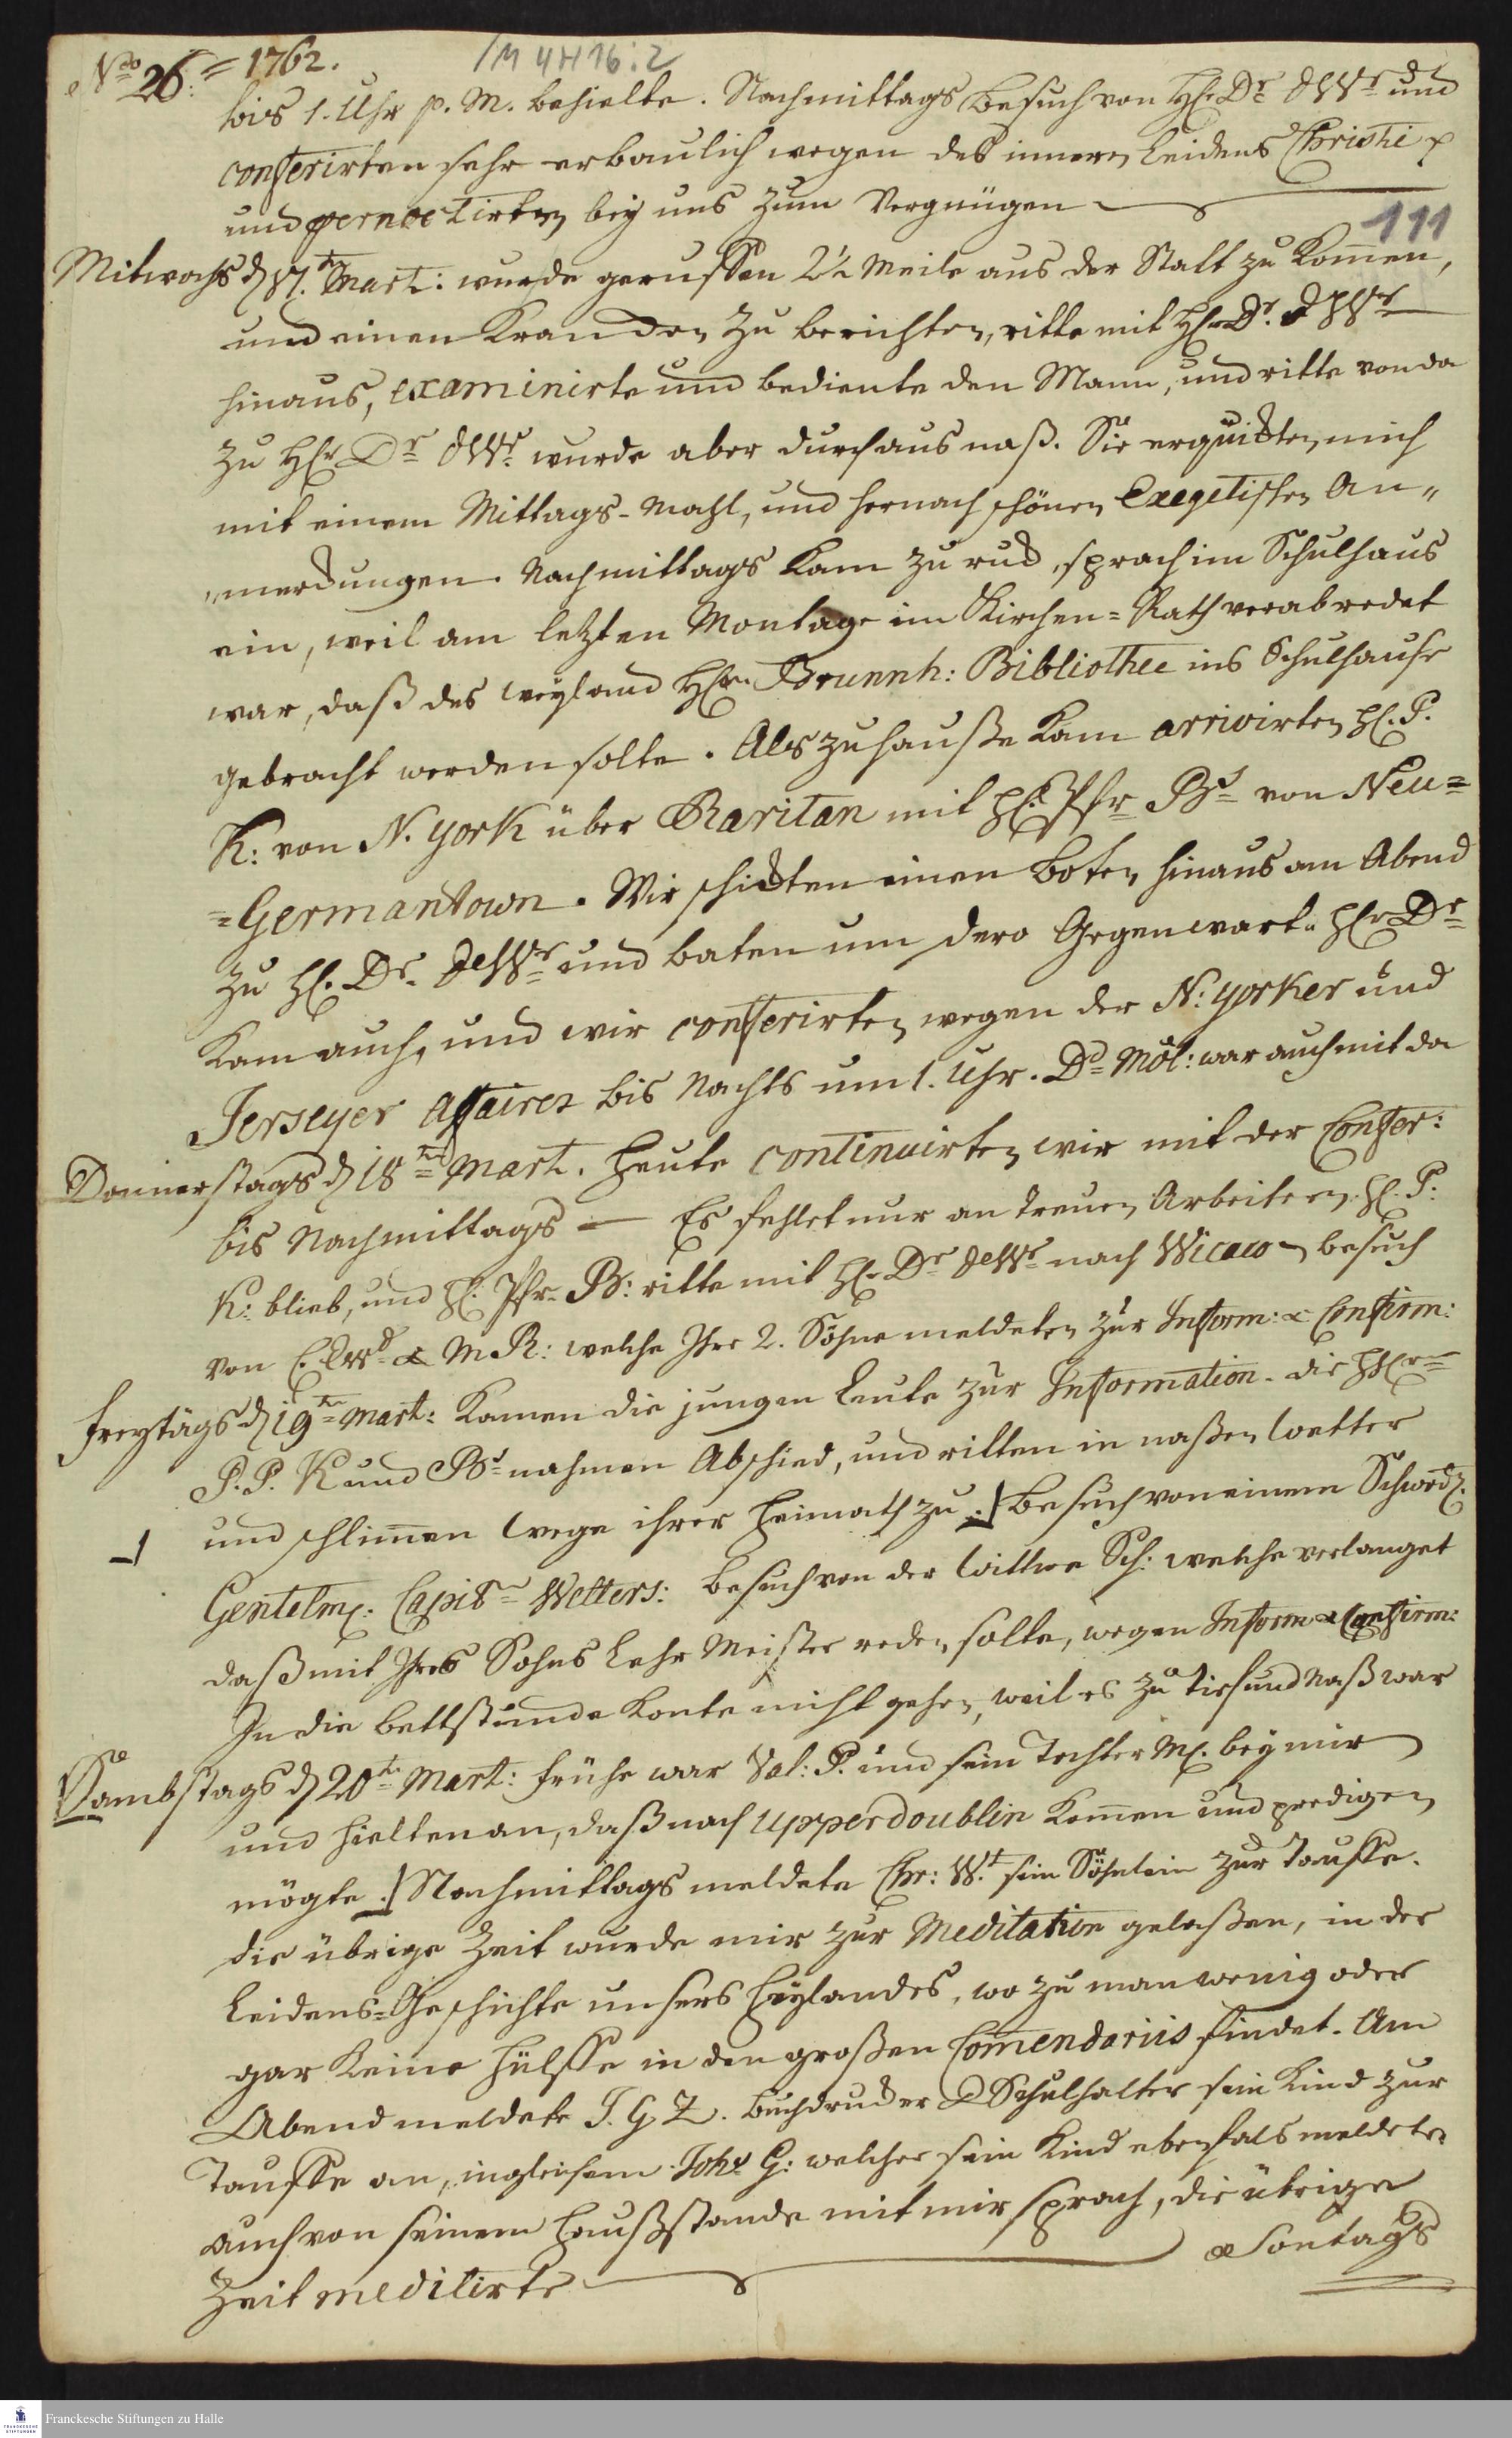 No 26. = 1762.
/M 4 H 16 : 2
bis 1. Uhr p. M. behielte. Nachmittags Besuch von HE. Dr. dWr und
conferirten sehr erbaulich wegen des innern Leidens Christi p
und pernoctirten bey uns zum Vergnügen
111
Mitwochs d 17.ten Mart: wurde geruffen 2½ Meile aus der Statt zu komen,
und einen Krancken zu berichten, ritte mit HE. Dr. d Wr
hinaus, examinirte und bediente den Mann, und ritte von da
zu HE. Dr dWr. wurde aber durchaus naß. Sie erquickten mich
mit einem Mittags-Mahl, und hernach schönen Exegetischen An„
„merckungen. Nachmittags kam zurück, sprach im Schulhaus
ein, weil am letzten Montage im Kirchen=Rath verabredet
war, daß des weyland HEn. Brunnh: Bibliothec ins Schulhause
gebracht werden solte. Als zu hauße kam arrivirten HE. P.
K: von N. york über Raritan mit HE. Pfr Bst von Neu=
=Germantown. Wir schickten einen Boten hinaus am Abend
zu HE. Dr. deWr und baten um dero Gegenwart. HEr Dr
kam auch, und wir conferirten wegen der N: yorker und
Jerseyer Affaires bis Nachts um 1. Uhr. Dd Möl: war auch mit da
Donnerstags d 18ten Mart. heute continuirten wir mit der Confer:
bis Nachmittags — Es fehlet nur an treuen Arbeitern. HE. P:
K: blieb, und HE. Pfr. B: ritte mit HE. Dr deWr nach Wicaco, besuch
von E. Ewd & M R: welche Ihre 2. Söhne meldeten zur Inform: & Confirm:
Freytags d 19te Mart: kamen die jungen Leute zur Information. die HHErn
P. P. K und Bst nahmen Abschied, und ritten in naßen Wetter
und schlimen Wege ihrer Heimath zu. Besuch von einem Schwed.
Gentelm. Capitn Welters: Besuch von der Wittwe Sch: welche verlanget
daß mit Ihres Sohns Lehr Meister reden solte, wegen Inform & Confirm:
In die Bettstunde konte nicht gehen, weil es zu tief und naß war
Sambstags d 20te Mart: frühe war Val: P. und sein Tochter M. bey mir
und hielten an, daß nach Upperdoublin komen und predigen
mögte. Nachmittags meldete Chr: W.t sein Söhnlein zur Tauffe.
die übrige Zeit wurde mir zur Meditation gelaßen, in der
Leidens=Geschichte unsers Heylandes, wo zu man wenig oder
gar keine Hülffe in den großen Comendariis findet. Am
Abend meldete J. G Z. Buchdrucker & Schulhalter sein Kind zur
Tauffe an, ingleichem Joh. G: welcher sein Kind ebenfals meldete
auch von seinem Haußstande mit mir sprach, die übrige
Zeit meditirte
Sontags
Franckesche Stiftungen zu Halle